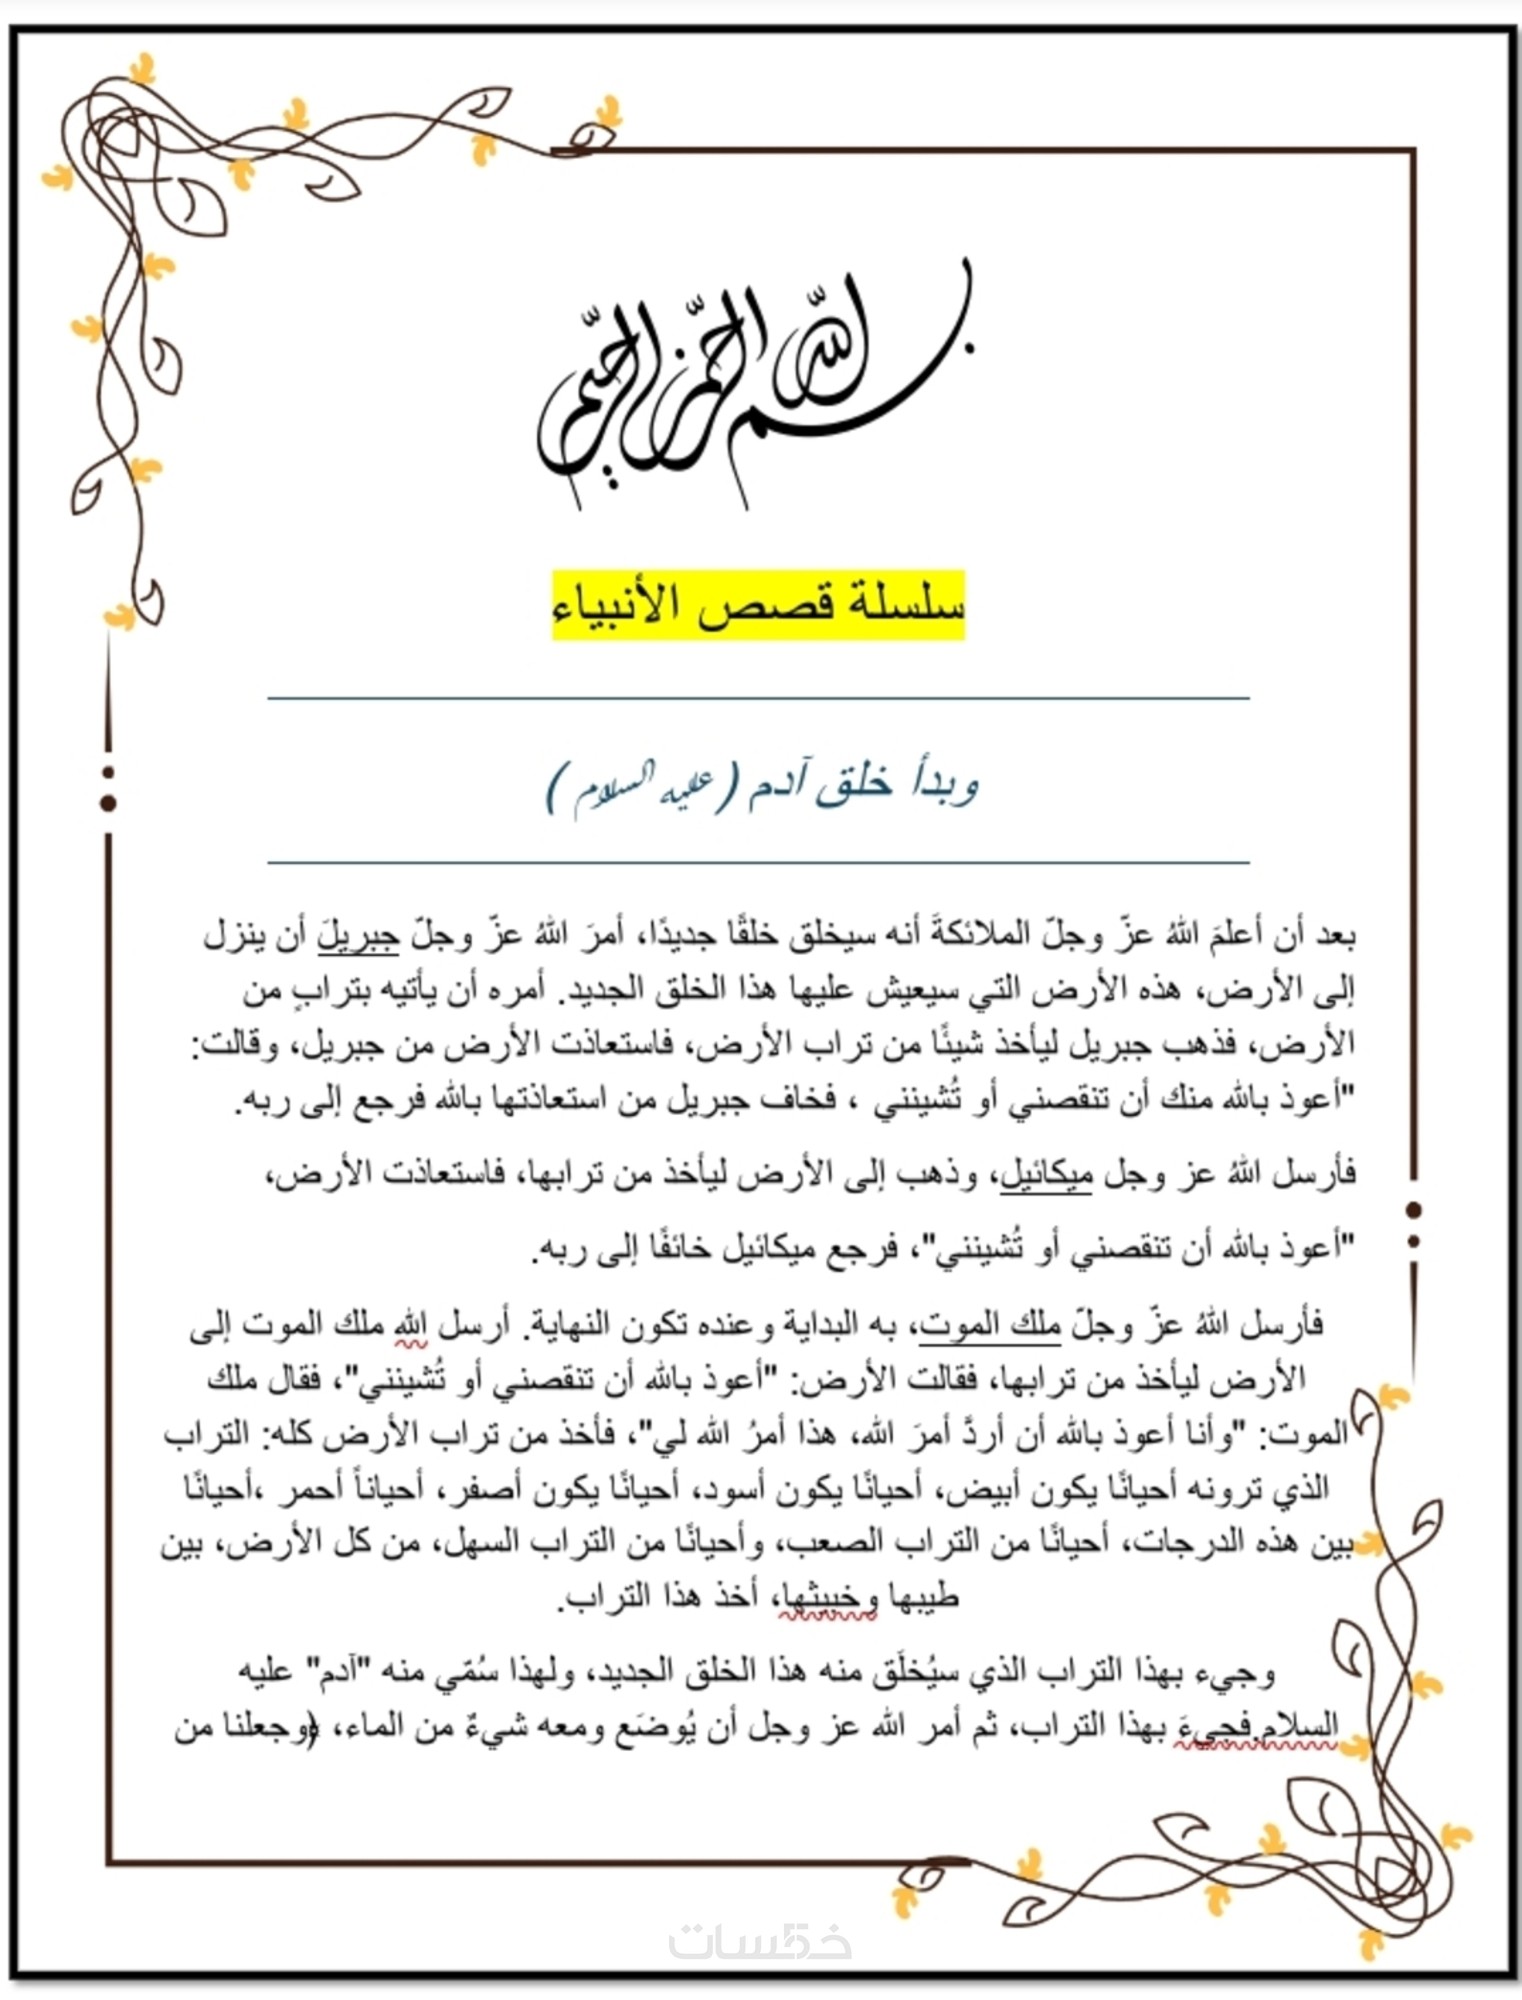 بسم الله الرحمن الرحيم
سلسلة قصص الأنبياء
وبدأ خلق آدم (عليه السلام)
بعد أن أعلمَ اللهُ عزّ وجلّ الملائكةَ أنه سيخلق خلقًا جديدًا، أمرَ اللهُ عزّ وجلّ جبريلَ أن ينزل
إلى الأرض، هذه الأرض التي سيعيش عليها هذا الخلق الجديد. أمره أن يأتيه بترابٍ من
الأرض، فذهب جبريل ليأخذ شيئًا من تراب الأرض، فاستعاذت الأرض من جبريل، وقالت:
"أعوذ بالله منك أن تنقصني أو تُشينني ، فخاف جبريل من استعاذتها بالله فرجع إلى ربه.
فأرسل اللهُ عز وجل ميكائيل، وذهب إلى الأرض ليأخذ من ترابها، فاستعاذت الأرض،
"أعوذ بالله أن تنقصني أو تُشينني"، فرجع ميكائيل خائفًا إلى ربه.
فأرسل اللهُ عزّ وجلّ ملك الموت، به البداية وعنده تكون النهاية. أرسل الله ملك الموت إلى
الأرض ليأخذ من ترابها، فقالت الأرض: "أعوذ بالله أن تنقصني أو تُشينني"، فقال ملك
الموت: "وأنا أعوذ بالله أن أردَّ أمرَ الله، هذا أمرُ الله لي"، فأخذ من تراب الأرض كله: التراب
الذي ترونه أحيانًا يكون أبيض، أحيانًا يكون أسود، أحيانًا يكون أصفر، أحياناً أحمر ،أحيانًا
بين هذه الدرجات، أحيانًا من التراب الصعب، وأحيانًا من التراب السهل، من كل الأرض، بين
طيبها وخبيثها، أخذ هذا التراب.
وجيء بهذا التراب الذي سيُخلَق منه هذا الخلق الجديد، ولهذا سُمّي منه "آدم" عليه
السلام.فجيءَ بهذا التراب، ثم أمر الله عز وجل أن يُوضَع ومعه شيءٌ من الماء، ﴿وجعلنا من
خمسات